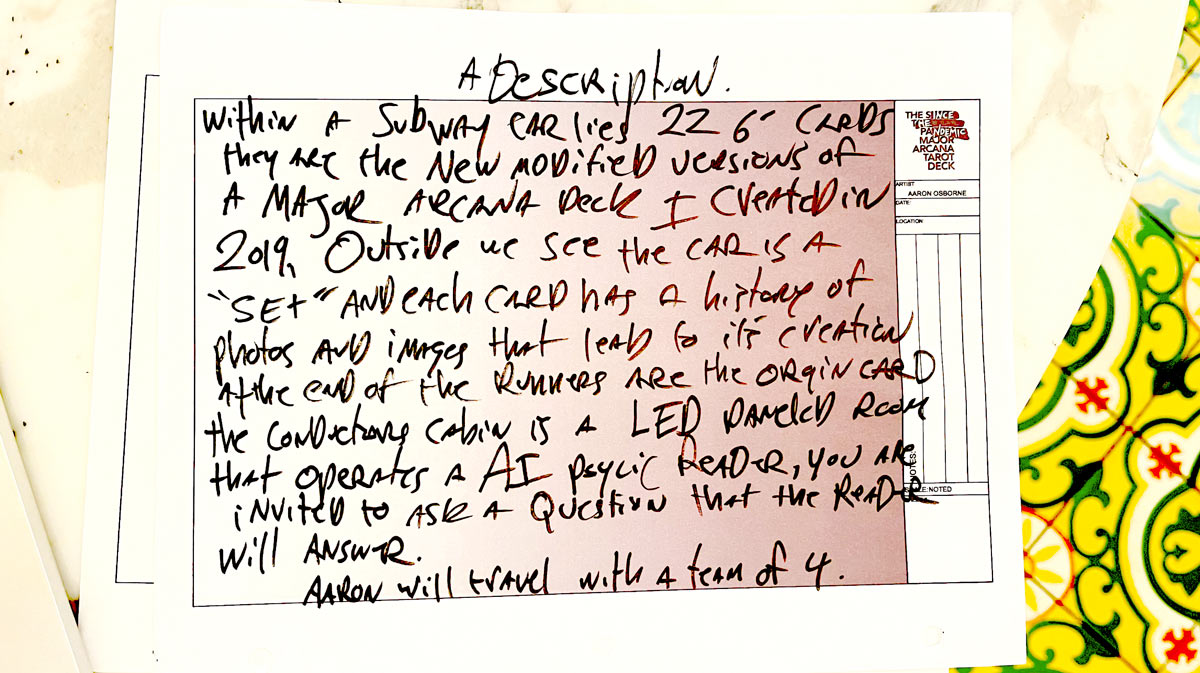 A DESCRIPTION.
WITHIN A SUBWAY CAR lies 22 6" CARDS
they ARE the NEW MODIFIED VERSIONS of
A MAJOR ARCANA DECK I CREATED IN
2019. OUTSIDE WE SEE the CAR IS A
"SET" AND EACH CARD has A history of
photos AND images that lead to it's CREATION
At the END of the RUNNERS ARE the ORGIN CARD
the CONDUCTORS CABIN IS A LED PANELED ROOM
that OPERATES A AI PSYCIC READER, YOU ARE
INVITED to ASK A QUESTION that the READER
Will ANSWER.
AARON will travel with A team of 4.
THE SINCE
THE
PANDEMIC
MAJOR
ARCANA
TAROT
DECK
ARTIST
AARON OSBORNE
DATE:
LOCATION
NOTES:
NOTED